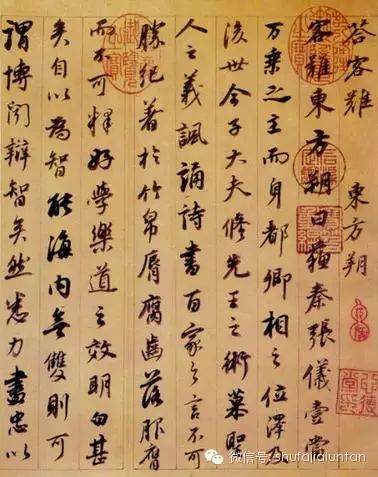 答客難 東方朔
客難東方朔曰蘇秦張儀壹當
万乘之主而身都卿相之位澤及
後世今子大夫修先王之術慕聖
人之義諷誦詩書百家之言不可
勝紀著於竹帛脣腐齒落服膺
而不可釋好學樂道之效明白甚
矣自以為智能海内無雙則可
謂博聞辯智矣然悉力盡忠以
微信号: shufajialuntan